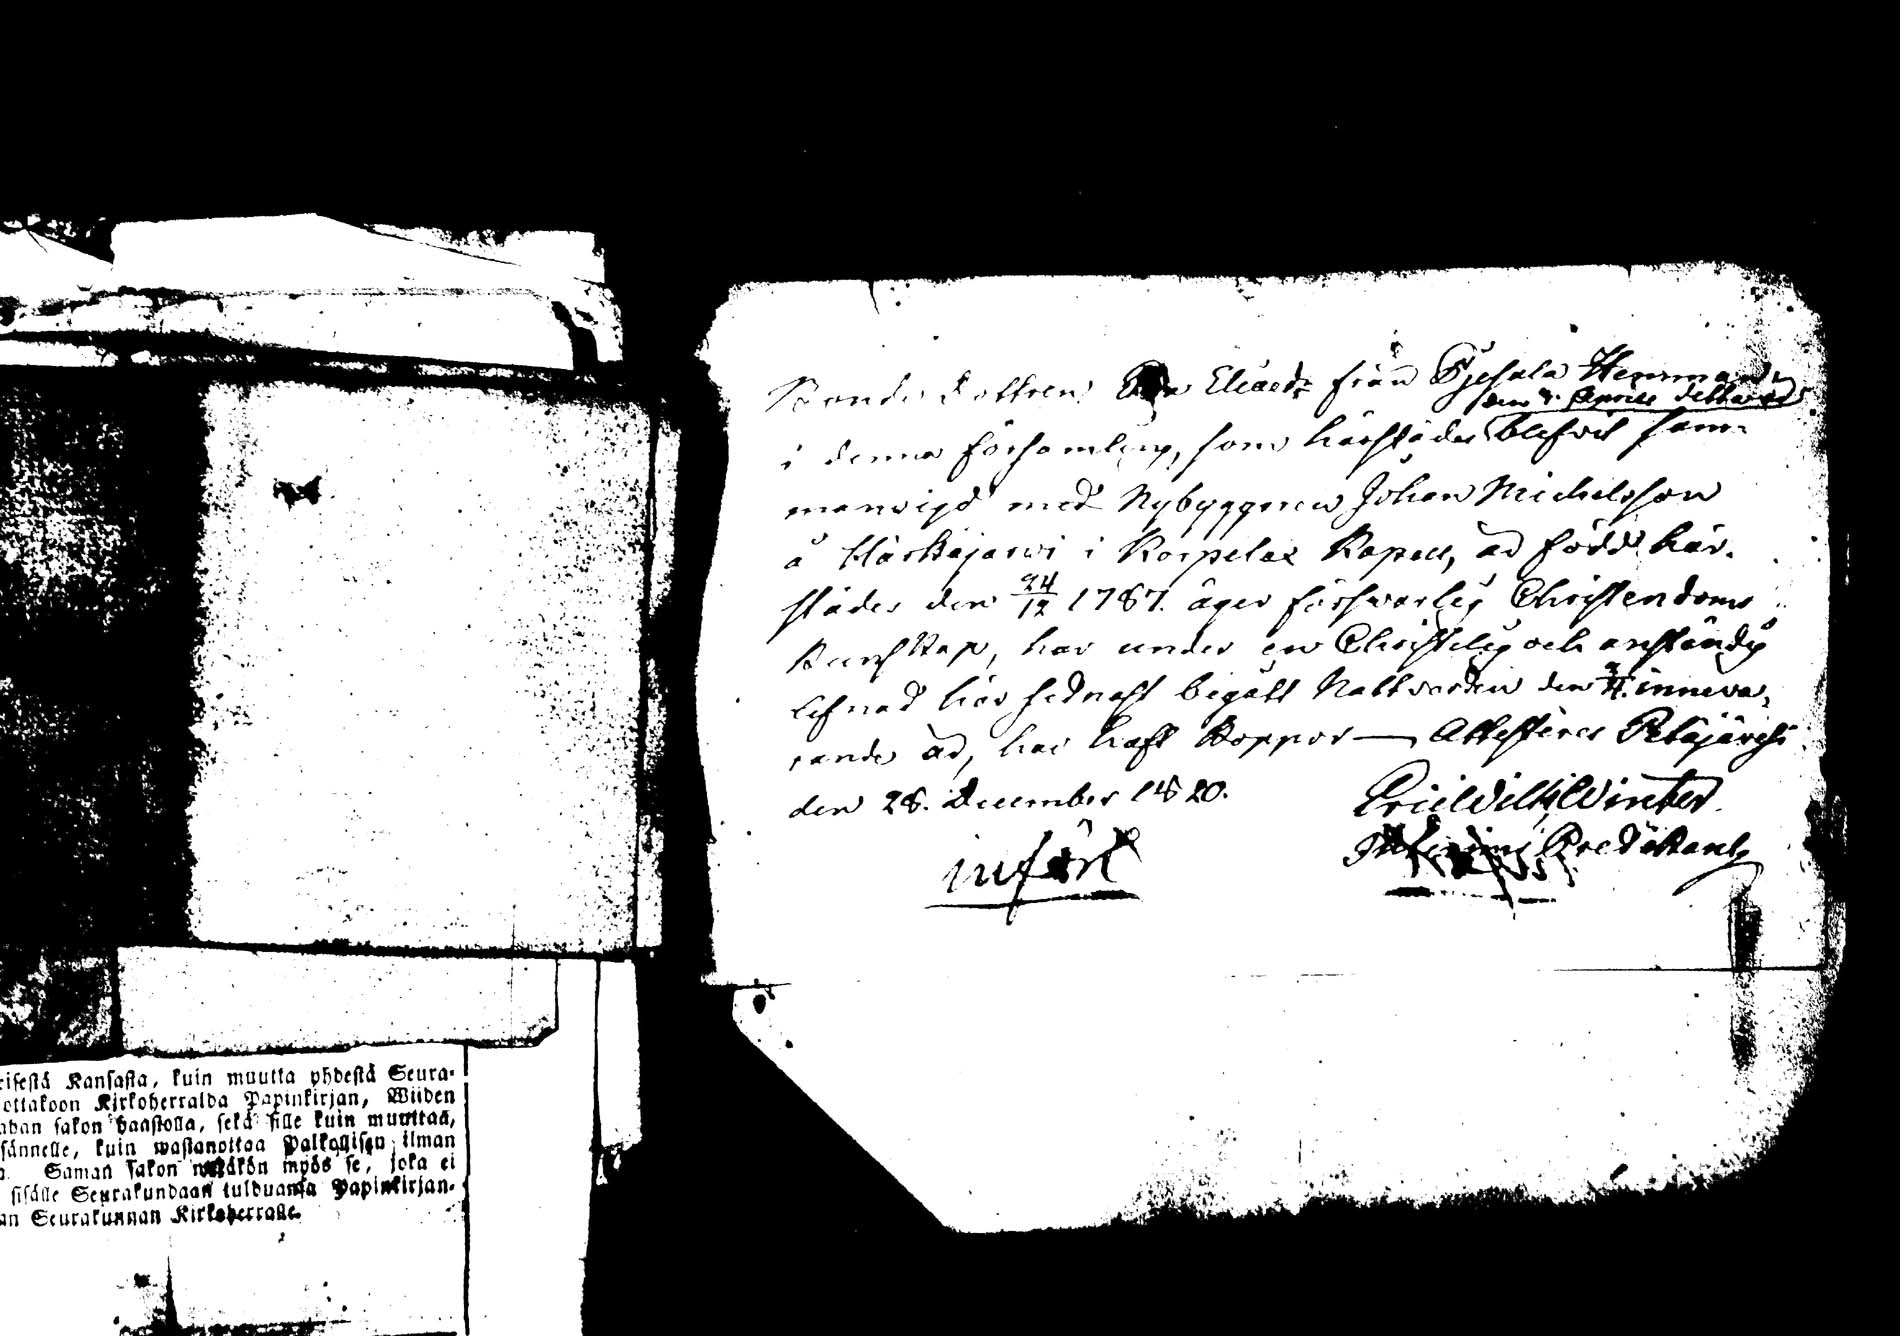 eisestä Kansasta, kuin muutta yhdestä Seura-
ottakoon Kirkoherralda Papinkirjan, Wiiden
adan sakon haastolla, sekä sille kuin muuttaa,
sännelle, kuin wastanottaa Palkollisen ilman
Saman sakon wetäkön myös se, joka ei
sisälle Seurakundaan tulduansa Papinkirjan-
an Seurakunnan Kirkoherralle.
Bonde dottren Eliaedr från Tjesala Hemman
den Aprill detta åd
i denna församling, som härstädes blefvit sam-
manvigd med Nybyggaren Johan Michelsson
å Härkäjarvi i Korpelax Kapell, är född här-
städes den 24/12 1787. äger försvarlig Christendoms
Kunskap, har under en Christelig och anständig
lefnad här sednast begått Nattvarden den inneva-
rande åd, har haft Koppor — Attesteras Petäjävesi
den 28. December 1820.
Eric Wilh. Winter.
Predikant
infört